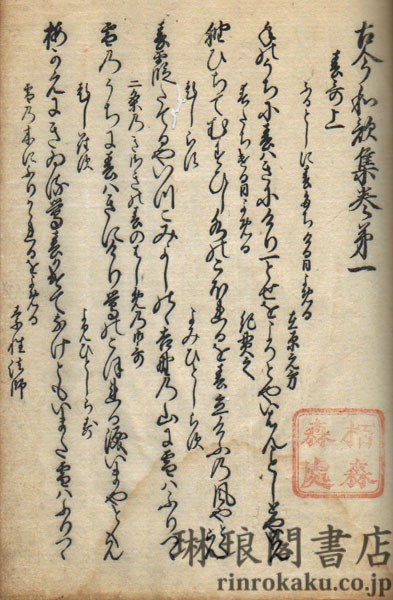 古今和歌集巻第一
春哥上
ふるとしに春たちける日よめる
在原元方
年のうちに春はきにけり一とせをこそとやいはんことしとやいはん
春たちける日よめる
紀貫之
袖ひちてむすひし水のこほれるを春立けふの風やとくらん
題しらす
よみひとしらす
春霞たてるやいつこみよしのゝ吉野乃山に雪ハふりつゝ
二条乃きさきの春のはしめ乃御哥
雪乃うちに春ハきにけり鶯のこほれる涙いまやとくらん
題しらす
よみひとしらす
梅かえにきゐる鶯春かけてなけともいまた雪ハふりつゝ
雪乃木にふりかゝれるをよめる
素性法師
琳琅閣書店
rinrokaku.co.jp